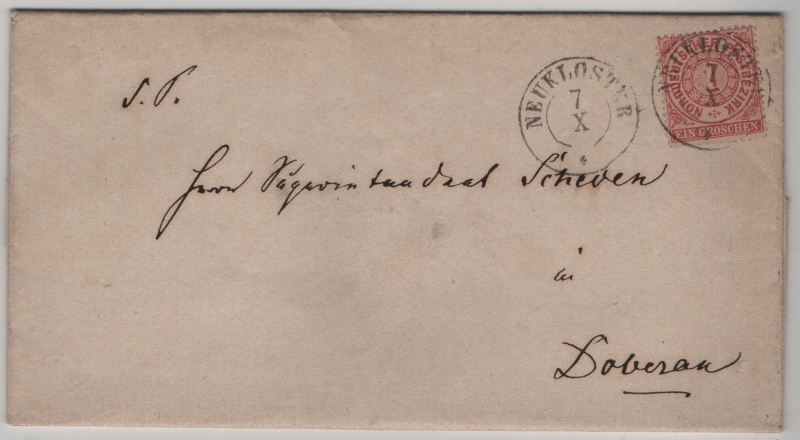 NEUKLOSTER
7
X
NEUKLOSTER
7
X
NORDDEUTSCHER POSTBEZIRK
1
EIN GROSCHEN
S. P.
Herrn Superintendent Scheven
in
Doberan